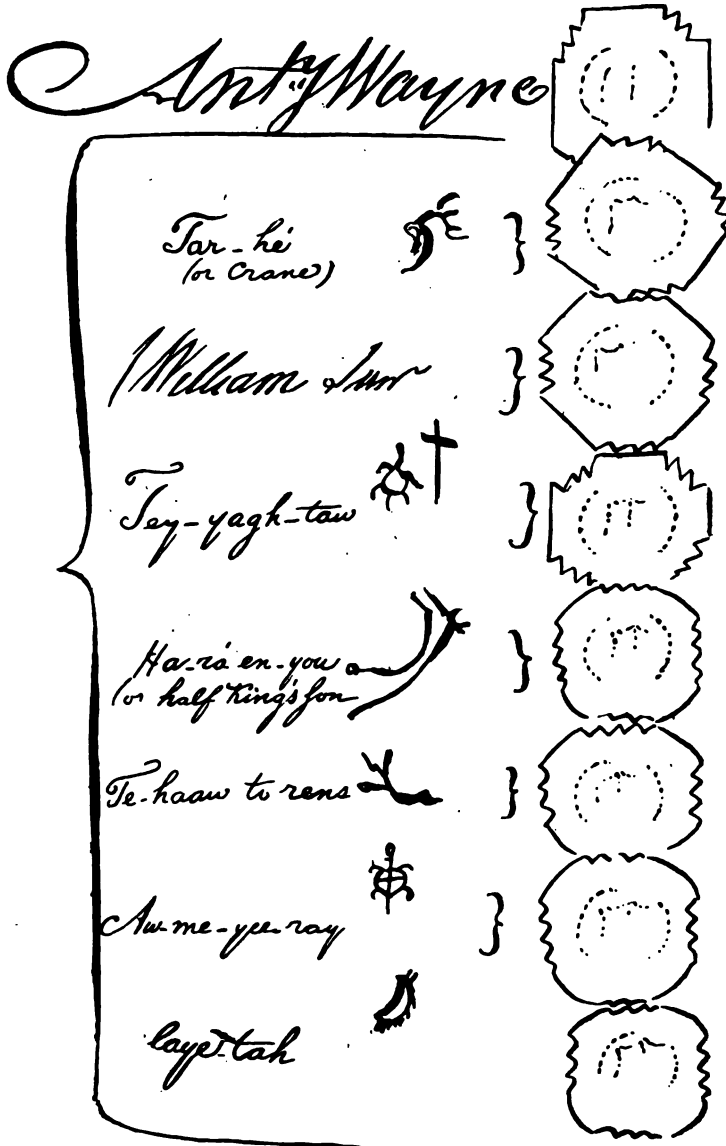 Anty Wayne
Tar-hé
(or Crane)
William Sur
Tey-yagh-taw
Ha-ro en-you
(or half King's Son
Te-haaw to rens
Aw-me-yee-ray
Stayé-tah